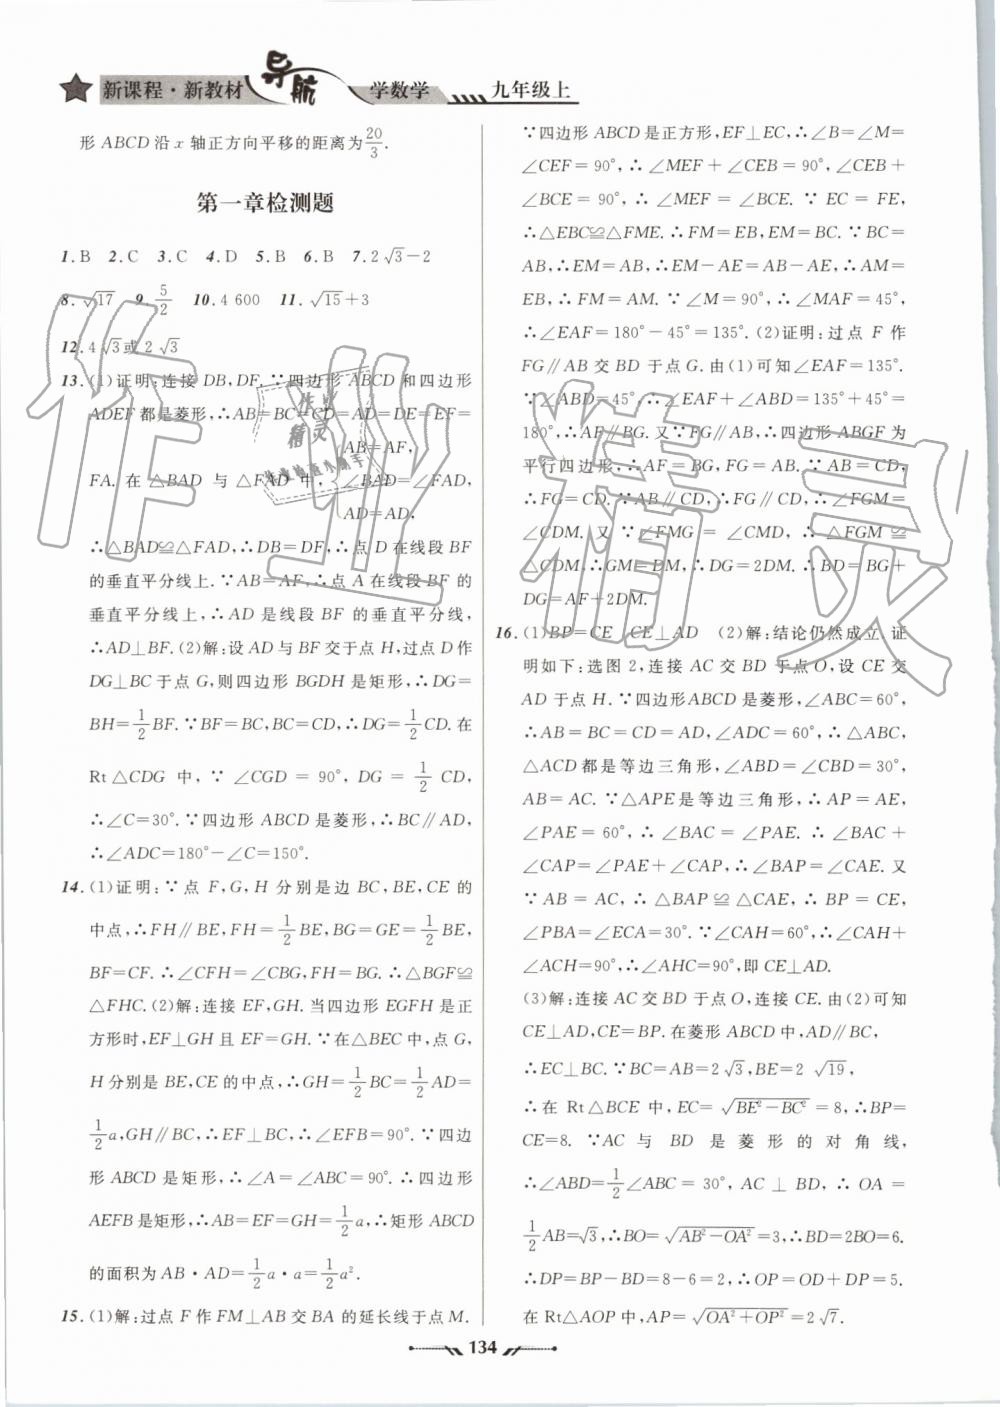 新课程·新教材 导航 学数学 九年级上
形 ABCD 沿 x 轴正方向平移的距离为20/3.
第一章检测题
1.B 2.C 3.C 4.D 5.B 6.B 7.2√3-2
8.√17 9.5/2 10.4 600 11.√15+3
12.4√3或2√3
13.(1)证明:连接 DB,DF.∵四边形 ABCD 和四边形
ADEF 都是菱形,∴AB=BC=CD=AD=DE=EF=
FA. 在 △BAD 与 △FAD 中, {AB=AF, ∠BAD=∠FAD, AD=AD,
∴△BAD≌△FAD,∴DB=DF,∴点 D 在线段 BF
的垂直平分线上.∵AB=AF,∴点 A 在线段 BF 的
垂直平分线上,∴AD 是线段 BF 的垂直平分线,
∴AD⊥BF.(2)解:设 AD 与 BF 交于点 H,过点 D 作
DG⊥BC 于点 G,则四边形 BGDH 是矩形,∴DG=
BH=1/2BF.∵BF=BC,BC=CD,∴DG=1/2CD. 在
Rt△CDG 中,∵ ∠CGD = 90°,DG = 1/2 CD,
∴∠C=30°.∵四边形 ABCD 是菱形,∴BC∥AD,
∴∠ADC=180°-∠C=150°.
14.(1)证明:∵点 F,G,H 分别是边 BC,BE,CE 的
中点,∴FH∥BE,FH=1/2BE,BG=GE=1/2BE,
BF=CF.∴∠CFH=∠CBG,FH=BG.∴△BGF≌
△FHC.(2)解:连接 EF,GH. 当四边形 EGFH 是正
方形时,EF⊥GH 且 EF=GH.∵在△BEC 中,点 G,
H 分别是 BE,CE 的中点,∴GH=1/2BC=1/2AD=
1/2a,GH∥BC,∴EF⊥BC,∴∠EFB=90°.∵四边
形 ABCD 是矩形,∴∠A=∠ABC=90°,∴四边形
AEFB 是矩形,∴AB=EF=GH=1/2a,∴矩形 ABCD
的面积为 AB·AD=1/2a·a=1/2a².
15.(1)解:过点 F 作 FM⊥AB 交 BA 的延长线于点 M.
∵四边形 ABCD 是正方形,EF⊥EC,∴∠B=∠M=
∠CEF=90°,∴∠MEF+∠CEB=90°,∠CEB+
∠BCE = 90°,∴ ∠MEF = ∠BCE. ∵ EC = FE,
∴△EBC≌△FME.∴FM=EB,EM=BC.∵BC=
AB,∴EM=AB,∴EM-AE=AB-AE,∴AM=
EB,∴FM=AM.∵∠M=90°,∴∠MAF=45°,
∴∠EAF=180°-45°=135°.(2)证明:过点 F 作
FG∥AB 交 BD 于点 G. 由(1)可知∠EAF=135°.
∵∠ABD=45°,∴∠EAF+∠ABD=135°+45°=
180°,∴AF∥BG. 又∵FG∥AB,∴四边形 ABGF 为
平行四边形,∴AF=BG,FG=AB.∵AB=CD,
∴FG=CD.∵AB∥CD,∴FG∥CD,∴∠FGM=
∠CDM. 又 ∵∠FMG=∠CMD,∴△FGM≌
△CDM,∴GM=DM,∴DG=2DM.∴BD=BG+
DG=AF+2DM.
16.(1)BP=CE CE⊥AD (2)解:结论仍然成立 证
明如下:选图 2,连接 AC 交 BD 于点 O,设 CE 交
AD 于点 H.∵四边形ABCD 是菱形,∠ABC=60°,
∴AB=BC=CD=AD,∠ADC=60°,∴△ABC,
△ACD都是等边三角形,∠ABD=∠CBD=30°,
AB=AC.∵△APE是等边三角形,∴AP=AE,
∠PAE=60°,∴∠BAC=∠PAE.∴∠BAC+
∠CAP=∠PAE+∠CAP,∴∠BAP=∠CAE. 又
∵AB=AC,∴△BAP≌△CAE,∴BP=CE,
∠PBA=∠ECA=30°.∵∠CAH=60°,∴∠CAH+
∠ACH=90°,∴∠AHC=90°,即 CE⊥AD.
(3)解:连接 AC 交 BD 于点 O,连接 CE. 由(2)可知
CE⊥AD,CE=BP. 在菱形 ABCD 中,AD∥BC,
∴EC⊥BC.∵BC=AB=2√3,BE=2√19,
∴在 Rt△BCE 中,EC=√(BE²-BC²)=8,∴BP=
CE=8. ∵AC 与 BD 是菱形的对角线,
∴∠ABD=1/2∠ABC=30°,AC⊥BD,∴OA=
1/2AB=√3,∴BO=√(AB²-OA²)=3,∴BD=2BO=6.
∴DP=BP-BD=8-6=2,∴OP=OD+DP=5.
在 Rt△AOP 中,AP=√(OA²+OP²)=2√7.
134
作业精灵